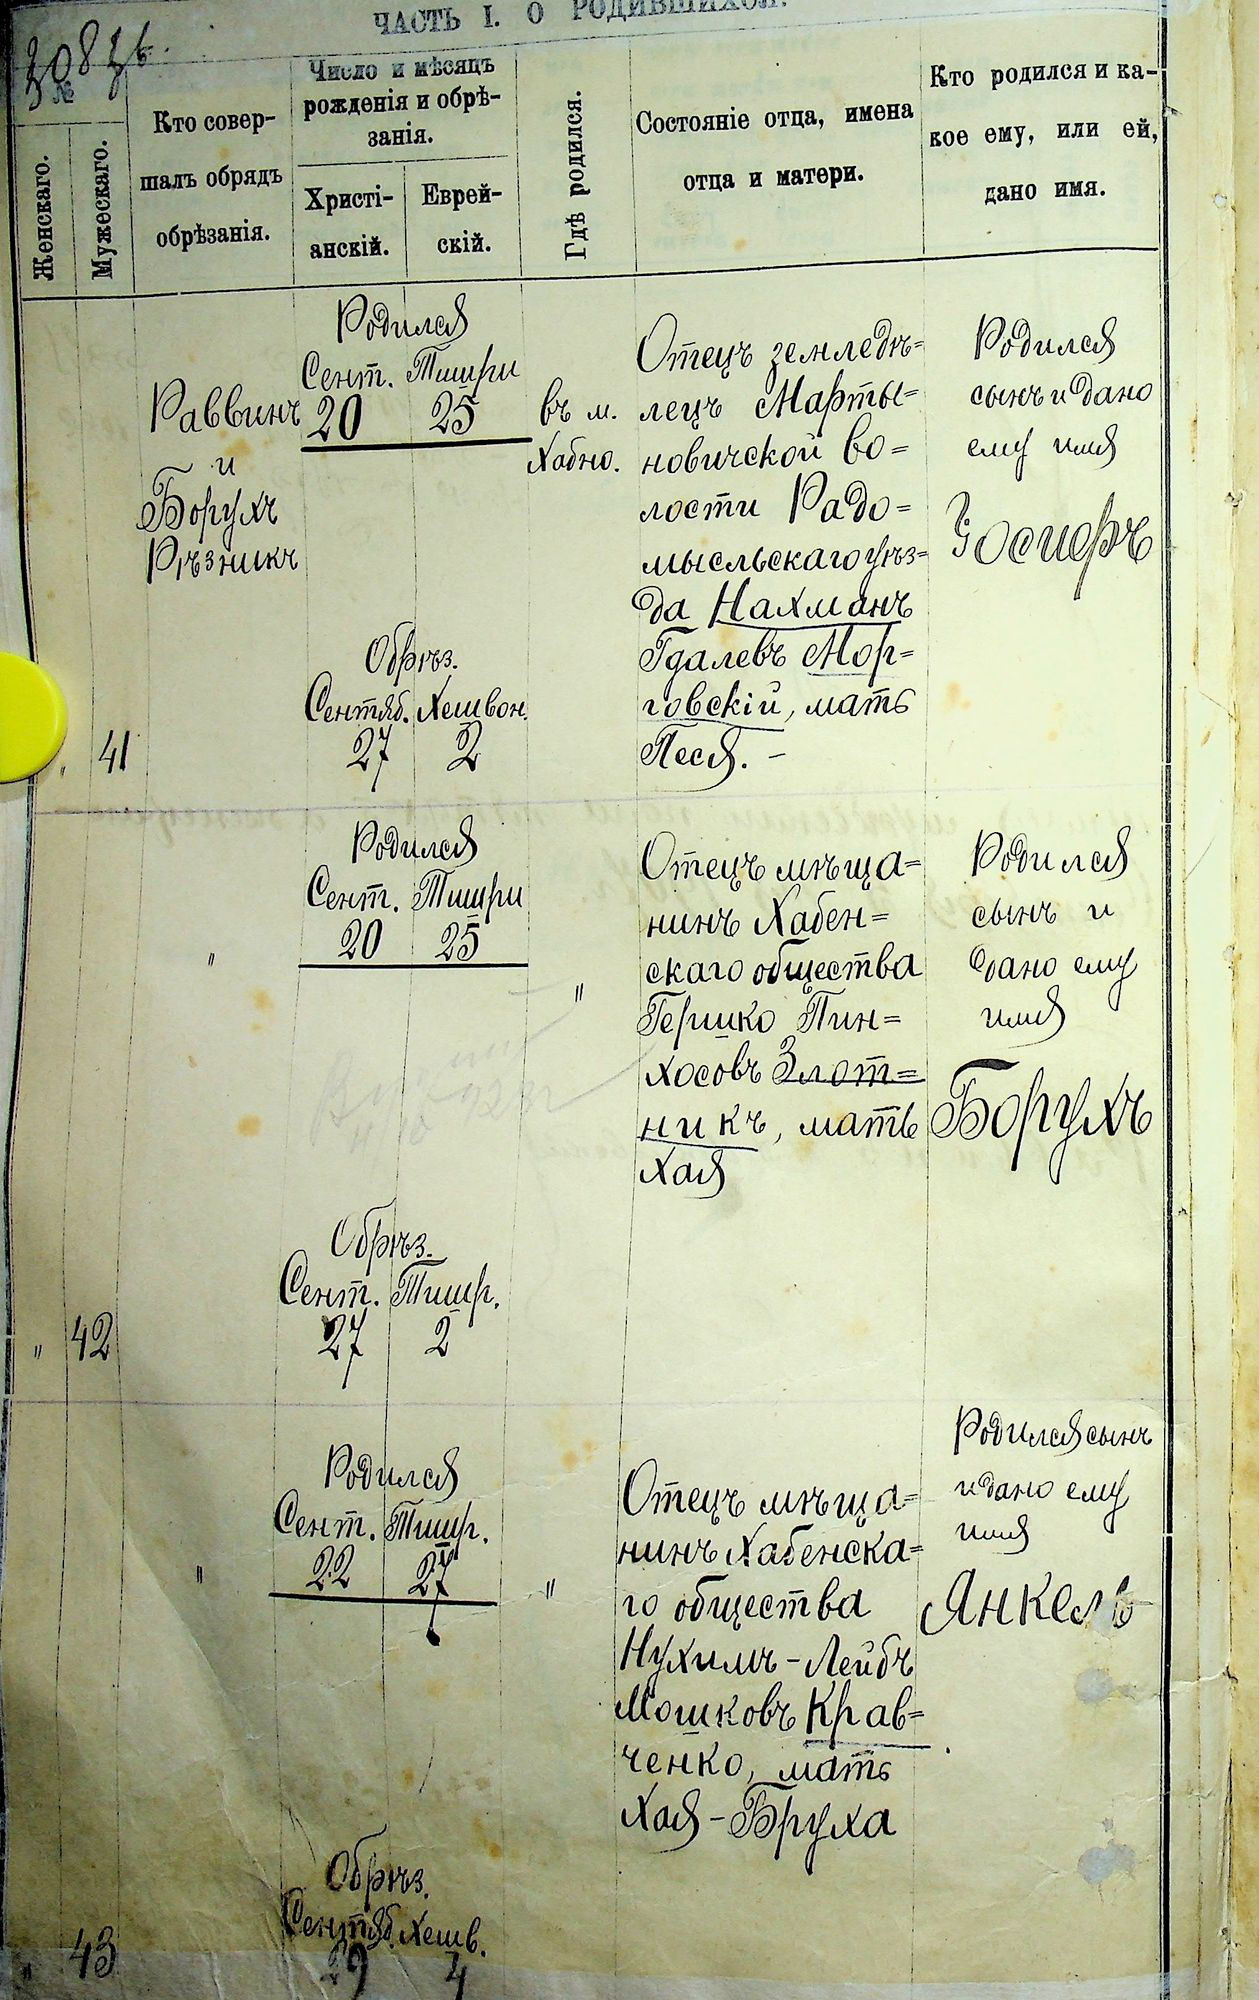 ЧАСТЬ I. О РОДИВШИХСЯ.
№
Женскаго.
Мужескаго.
Кто совер-
шалъ обрядъ
обрѣзанія.
Число и мѣсяцъ
рожденія и обрѣ-
занія.
Христі-
анскій.
Еврей-
скій.
Гдѣ родился.
Состояніе отца, имена
отца и матери.
Кто родился и ка-
кое ему, или ей,
дано имя.
„ 41
Раввинъ
и
Борухъ
Рѣзникъ
Родился
Сент. Тишри
20 25
Обрѣз.
Сентяб. Хешвон.
27 2
въ м.
Хабно.
Отецъ земледѣ=
лецъ Марты=
новичской во=
лости Радо=
мысльскаго уѣз=
да Нахманъ
Гдалевъ Мор=
говскій, мать
Песя. –
Родился
сынъ и дано
ему имя
Іосиеръ
„ 42
„
Родился
Сент. Тишри
20 25
Обрѣз.
Сент. Тишр.
27 2
„
Отецъ мѣща=
нинъ Хабен=
скаго общества
Гершко Пин=
хосовъ Злот=
никъ, мать
Хая
Родился
сынъ и
дано ему
имя
Борухъ
„ 43
„
Родился
Сент. Тишр.
22 27
Обрѣз.
Сентяб. Хешв.
29 4
„
Отецъ мѣща=
нинъ Хабенска=
го общества
Нухимъ-Лейбъ
Мошковъ Крав=
ченко, мать
Хая-Бруха
Родился сынъ
и дано ему
имя
Янкель